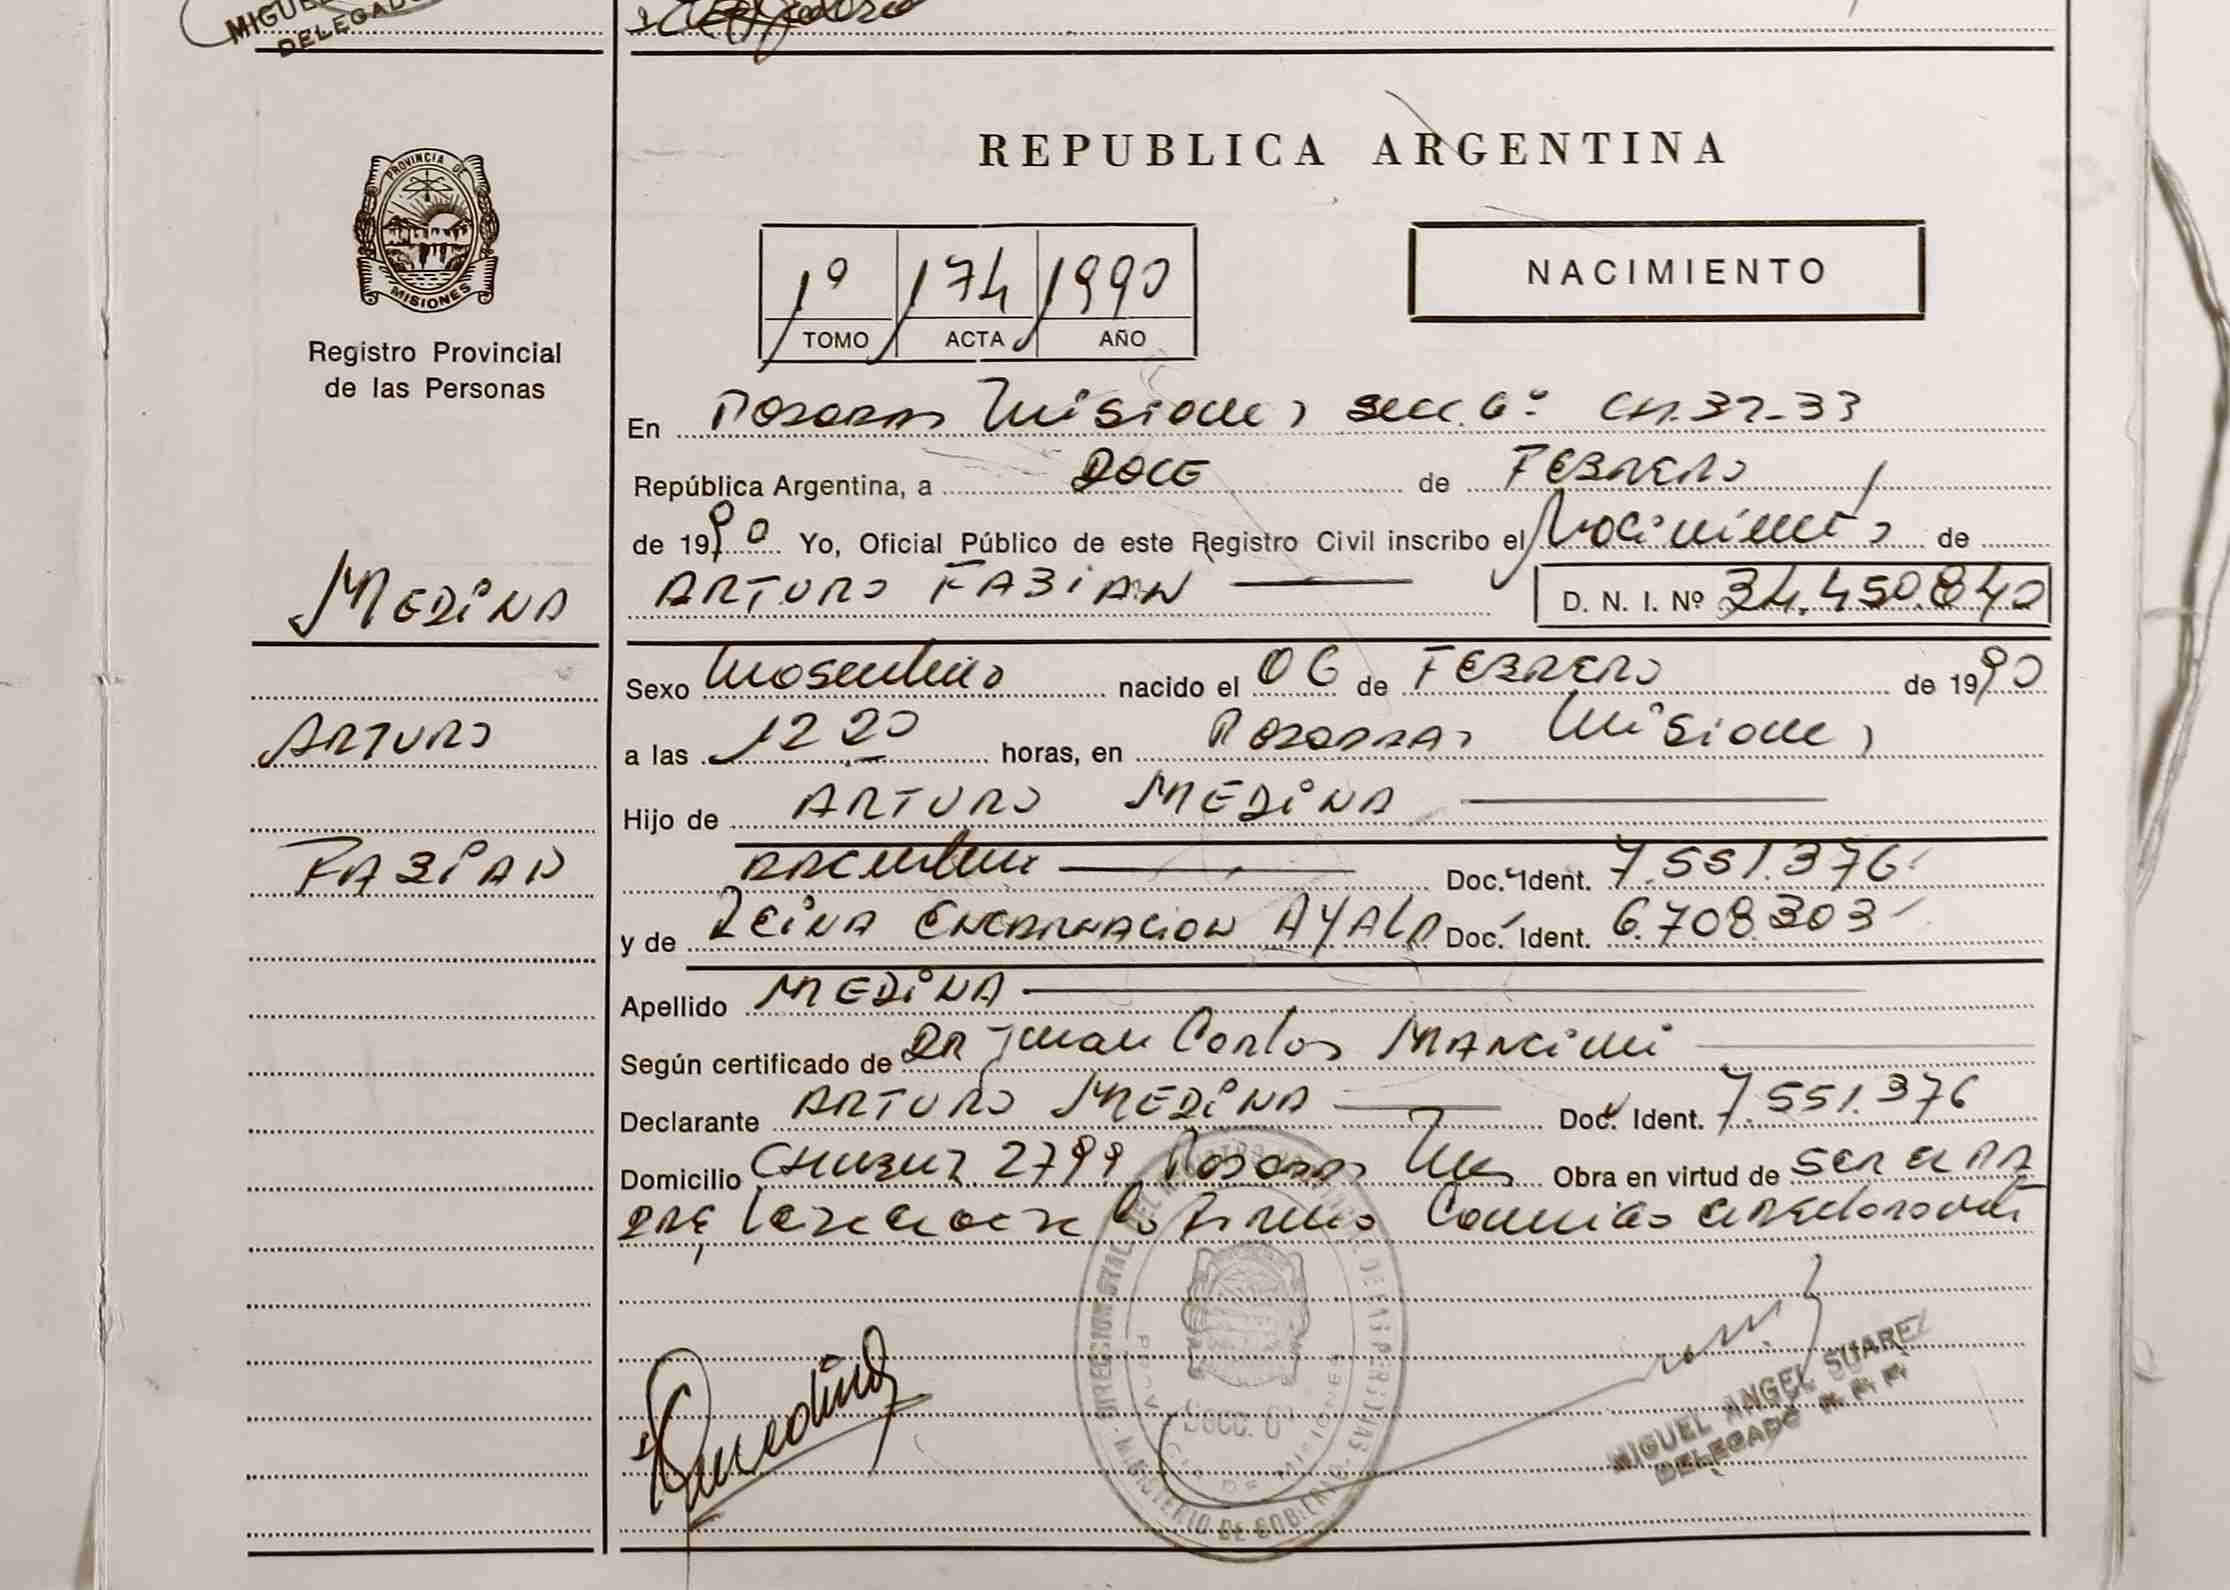 MIGUEL
DELEGADO
REPUBLICA ARGENTINA
PROVINCIA DE
MISIONES
Registro Provincial
de las Personas
1º 174 1990
TOMO ACTA AÑO
NACIMIENTO
En Posadas Misiones secc. 6º CH.32-33
República Argentina, a DOCE de FEBRERO
de 1990 Yo, Oficial Público de este Registro Civil inscribo el Nacimiento de
MEDINA
ARTURO FABIAN D. N. I. Nº 34.450.840
Sexo Masculino nacido el 06 de FEBRERO de 1990
ARTURO
a las 12 20 horas, en Posadas, Misiones
Hijo de ARTURO MEDINA
FABIAN
argentino Doc. Ident. 7.551.376
y de REINA ENCARNACION AYALA Doc. Ident. 6.708.303
Apellido MEDINA
Según certificado de DR Juan Carlos MANCini
Declarante ARTURO MEDINA Doc. Ident. 7.551.376
Domicilio CHUBUT 2799 Posadas Mnes Obra en virtud de ser el PA
DRE
MIGUEL ANGEL SUAREZ
DELEGADO
MINISTERIO DE GOBIERNO
PROVINCIA DE MISIONES